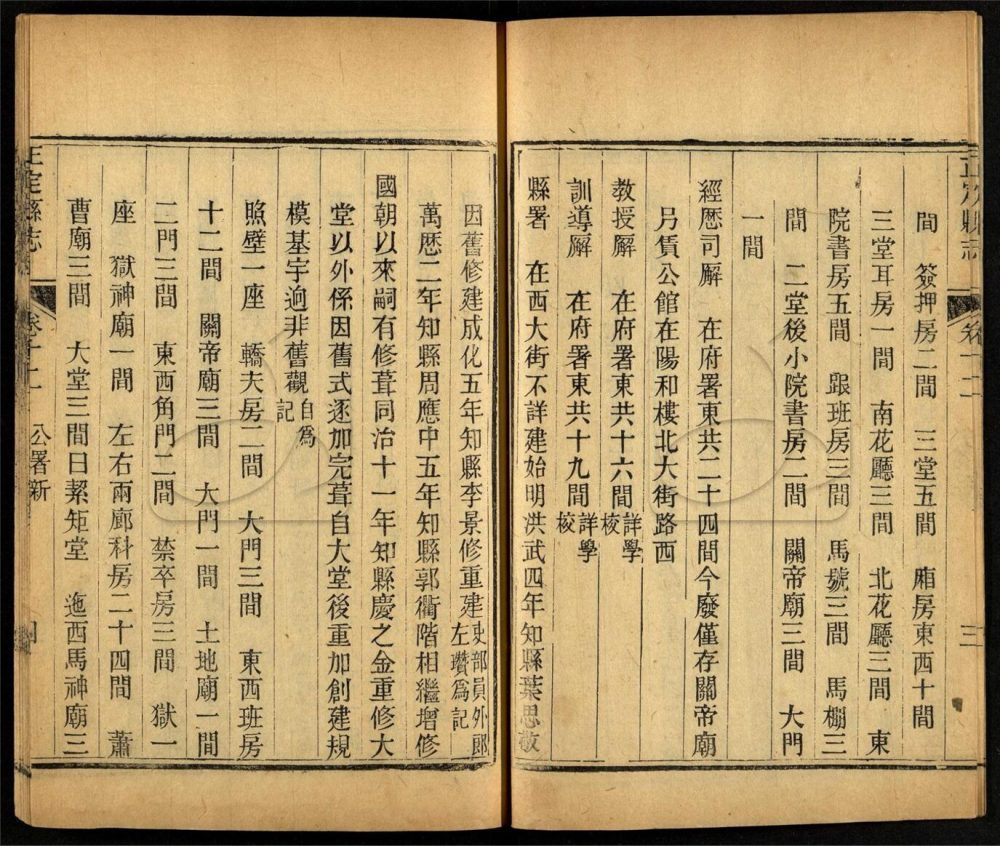 正定縣志 卷十二 三
間 簽押房二間 三堂五間 廂房東西十間
三堂耳房一間 南花廳三間 北花廳三間 東
院書房五間 跟班房三間 馬號三間 馬棚三
間 二堂後小院書房二間 關帝廟三間 大門
一間
經歷司廨 在府署東共二十四間今廢僅存關帝廟
另賃公館在陽和樓北大街路西
教授廨 在府署東共十六間詳學校
訓導廨 在府署東共十九間詳學校
縣署 在西大街不詳建始明洪武四年知縣葉思敬
因舊修建成化五年知縣李景修重建吏部員外郎左瓚為記
萬曆二年知縣周應中五年知縣郭衢階相繼增修
國朝以來嗣有修葺同治十一年知縣慶之金重修大
堂以外係因舊式逐加完葺自大堂後重加創建規
模基宇逈非舊觀自為記
照壁一座 轎夫房二間 大門三間 東西班房
十二間 關帝廟三間 大門一間 土地廟一間
二門三間 東西角門二間 禁卒房三間 獄一
座 獄神廟一間 左右兩廊科房二十四間 蕭
曹廟三間 大堂三間曰絜矩堂 迤西馬神廟三
正定縣志 卷十二 公署新